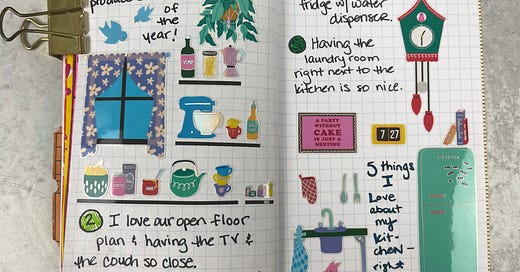 produce
of the
year!
2 I love our open floor
plan & having the TV &
the couch so close.
fridge w/ water
dispenser.
Having the
laundry room
right next to the
kitchen is so nice.
A PARTY
WITHOUT
CAKE
IS JUST A
MEETING
7 27
5 things
I
Love
about
my
kit-
chen -
right